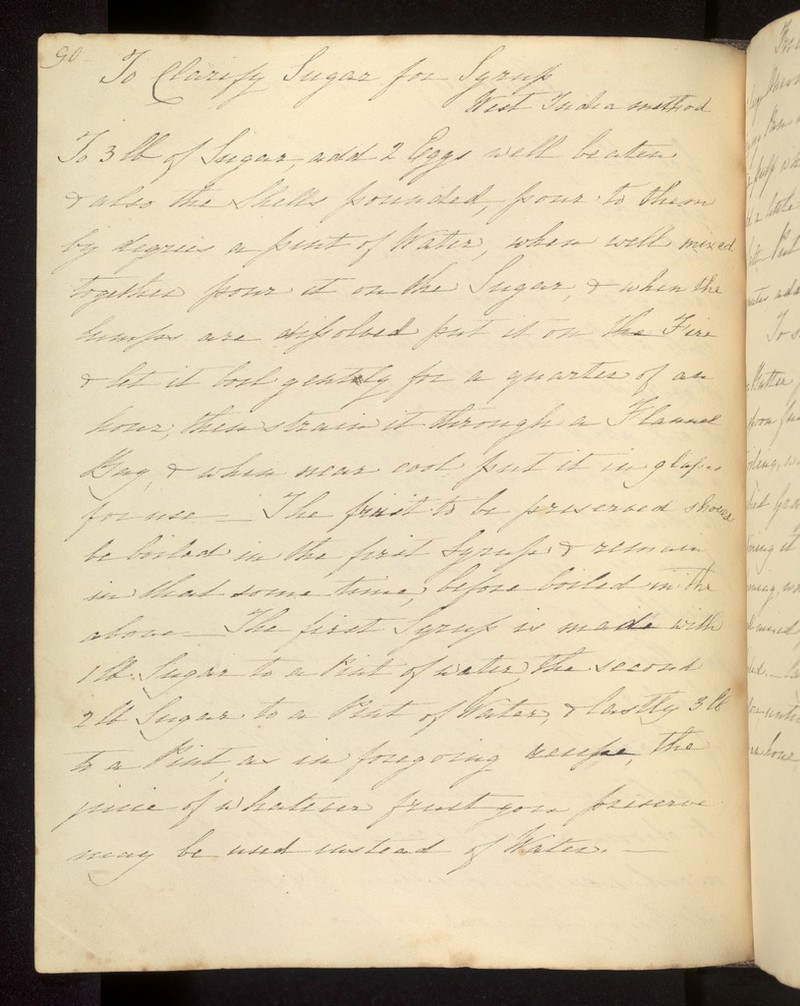 90
To Clarify Sugar for Syrup
West India method
To 3 lb of Sugar, add 2 Eggs well beaten
& also the Shells pounded, pour to them
by degrees a pint of Water, when well mixed
together pour it on the Sugar, & when the
lumps are dissolved put it on the Fire
& let it boil gently for a quarter of an
hour, then strain it through a Flannel
Bag, & when near cool put it in glasses
for use — The fruit to be preserved should
be boiled in the first Syrup & remain
in that some time, before boiled in the
above — The first Syrup is made with
1 lb. Sugar to a Pint of water, the second
2 lb Sugar to a Pint of Water, & lastly 3 lb
to a Pint, as in foregoing receipe, the
juice of whatever fruit you preserve
may be used instead of Water. —
To
Butter
it
hour